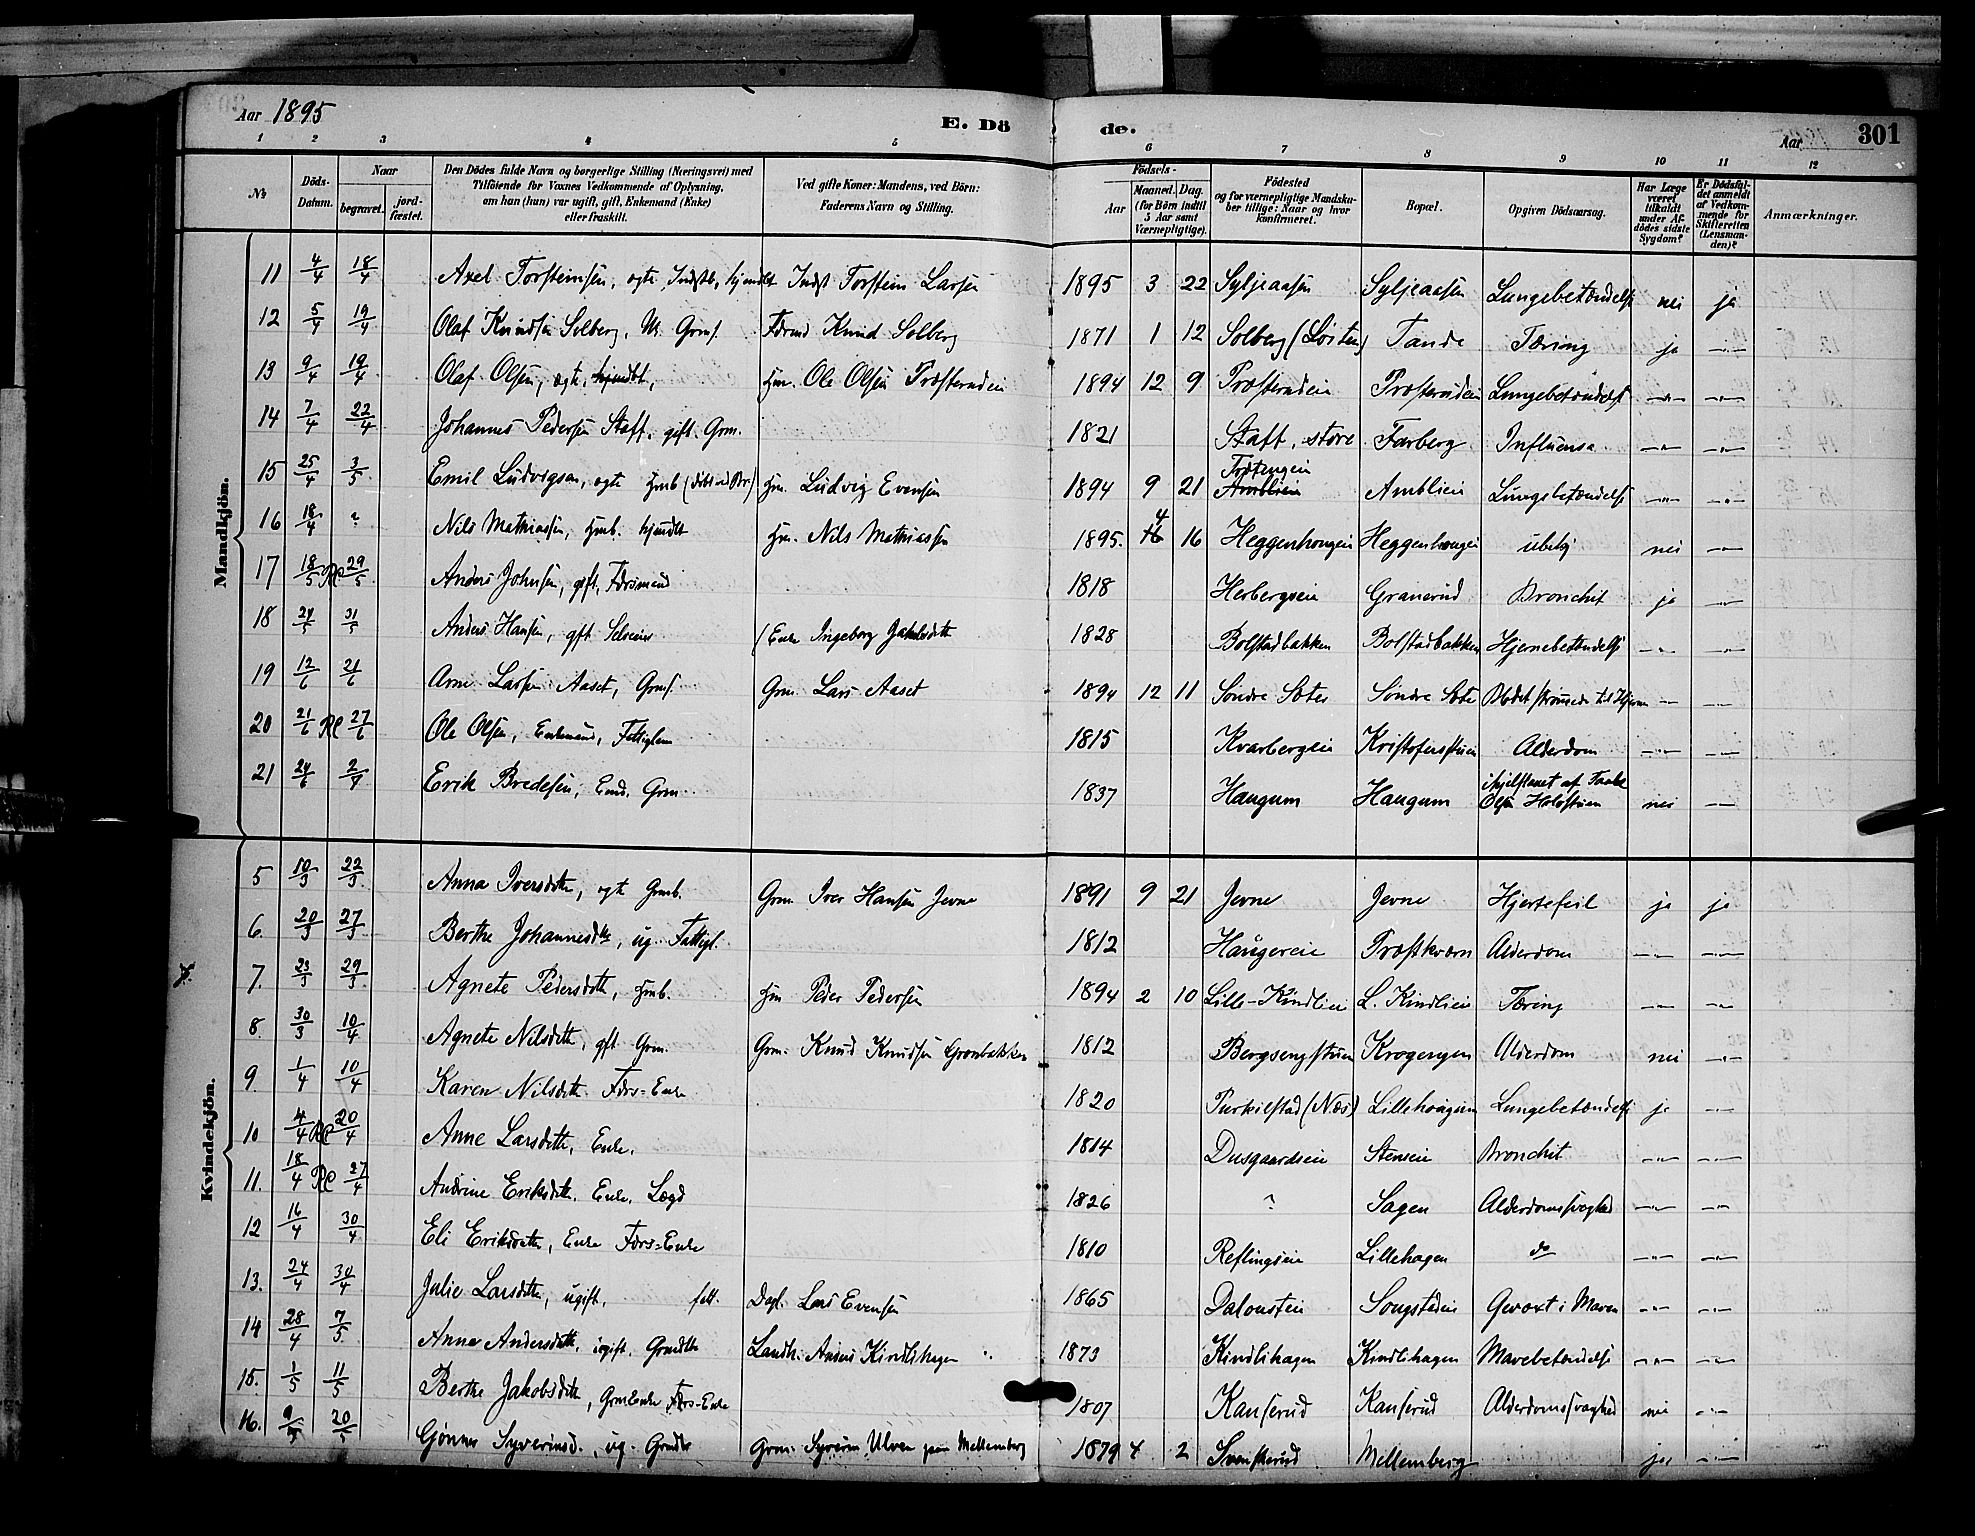 Aar 1895 E. Dö de. Aar 301
1 2 3 4 5 6 7 8 9 10 11 12
№ Döds-Datum. Naar begravet. jord-fæstet. Den Dödes fulde Navn og borgerlige Stilling (Næringsvei) med Tilföiende for Voxnes Vedkommende af Oplysning, om han (hun) var ugift, gift, Enkemand (Enke) eller fraskilt. Ved gifte Koner: Mandens, ved Börn: Faderens Navn og Stilling. Födsels- Aar Maaned. Dag. (for Börn indtil 5 Aar samt Værnepligtige). Födested og for værnepligtige Mandskaber tillige: Naar og hvor konfirmeret. Bopæl. Opgiven Dödsaarsag. Har Læge været tilkaldt under Afdödes sidste Sygdom? Er Dödsfaldet anmeldt af Vedkommende for Skifteretten (Lensmanden)? Anmærkninger.
Mandkjön.
11 4/4 18/4 Axel Torsteinsen, ægte, Indstb, hjemdbt Indst Torstein Larsen 1895 3 22 Syljeaasen Syljeaasen Lungebetændelse nei ja
12 5/4 19/4 Olaf Knudsen Solberg, U. Grms. Formd Knud Solberg 1871 1 12 Solberg (Löiten) Tande Tæring ja -"-
13 9/4 19/4 Olaf Olsen, ægte, hjemdbt, Hm. Ole Olsen Præsterudeie 1894 12 9 Præsterudeie Præsterudeie Lungebetændelse -"- -"-
14 7/4 22/4 Johannes Pedersen Staff, gift. Grm. 1821 Staff, store Farberg Influensa -"- -"-
15 25/4 3/5 Emil Ludvigsen, ægte Hmb Hm. Ludvig Evensen 1894 9 21 Amblieie Amblieie Lungebetændelse -"- -"-
16 18/4 ? Nils Mathiassen, Hmb. hjemdbt Hm. Nils Mathiassen 1895. 4 16 Heggenhougen Heggenhougen ubekj nei -"-
17 18/5 29/5 Anders Johnsen, gift, Forsmand 1818 Herbergseie Granerud Bronchit ja -"-
18 24/5 31/5 Anders Hansen, gift Selveier (Enke Ingeborg Jakobsdtr 1828 Bolstadbakken Bolstadbakken Hjernebetændelse -"- -"-
19 12/6 21/6 Arne Larsen Aaset, Grms. Grm. Lars Aaset 1894 12 11 Söndre Sæter Söndre Sæte Blodet strömmede til Hjernen -"- -"-
20 21/6 27/6 Ole Olsen, Enkemand, Fattiglem 1815 Kvarbergseie Kristofersstuen Alderdom -"- -"-
21 24/6 2/7 Erik Bredesen, Enkm. Grm. 1837 Haugum Haugum ihjelslaaet af Olsen Holostuen nei -"-
Kvindekjön.
5 10/3 22/3 Anna Iversdtr, ægte Grmb. Grm. Iver Hansen Jevne 1891 9 21 Jevne Jevne Hjertefeil ja ja
6. 20/3 27/3 Berthe Johannesdtr, ug. Fattigl. 1812 Haugereie Præstkværn Alderdom -"- -"-
7. 23/3 29/3 Agnete Pedersdtr, Hmb. Hm Peder Pedersen 1894 2 10 Lille-Kindlieie L. Kindlieie Tæring -"- -"-
8. 30/3 10/4 Agnete Nilsdtr, gift Grm. Grm. Knud Knudsen Grönbakken 1812 Bergsengstuen Krogengen Alderdom nei -"-
9. 1/4 10/4 Karen Nilsdtr. Fors-Enke 1820 Purkilstad (Næs) Lillehougen Lungebetændelse ja -"-
10 4/4 20/4 Anne Larsdtr, Enke. 1814 Dusgaardseie Stenseie Bronchit -"- -"-
11. 18/4 27/4 Andrine Eriksdtr. Enke. Lægd 1826 ? Sagen Alderdomssvaghed -"- -"-
12 16/4 30/4 Eli Eriksdtr, Enke Fors-Enke 1810 Reflingseie Lillehagen do -"- -"-
13. 24/4 30/4 Julie Larsdtr, ugift, fatt. Dagl. Lars Evensen 1865 Dalonseie Songstadeie Gevæxt i Maven -"- -"-
14 28/4 7/5 Anne Andersdtr. ugift. Grmdtr Landh. Anders Kindlihagen 1873 Kindlihagen Kindlihagen Mavebetændelse -"- -"-
15. 1/5 11/5 Berthe Jakobsdtr, Grmsenke Fors-Enke 1807 Kanserud Kanserud Alderdomssvaghed nei -"-
16. 9/5 20/5 Gjönner Syverinsd., ug. Grmdtr Grm. Syverin Ulven paa Mellemberg 1879 4 2 Svenskerud Mellemberg ja -"-